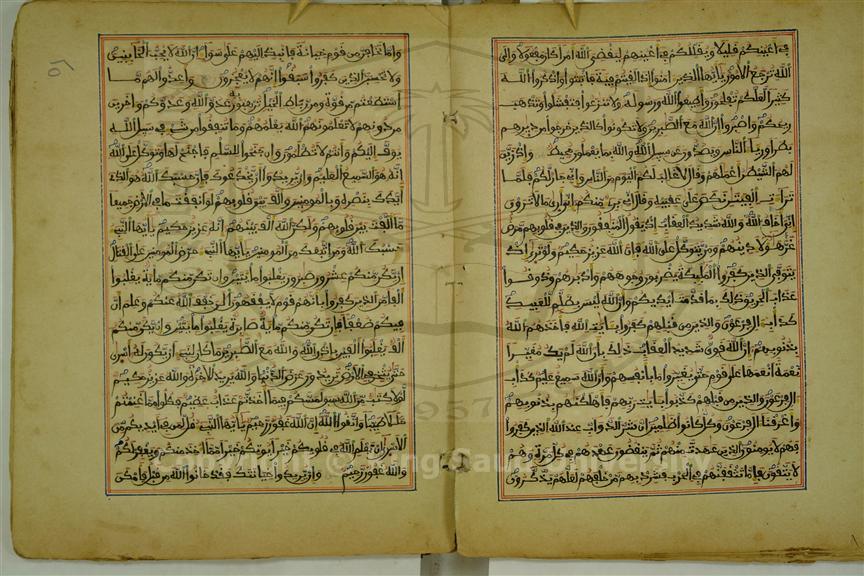 في أعينكم قليلا ويقللكم في أعينهم ليقضي الله أمرا كان مفعولا وإلى
الله ترجع الأمور يأيها الذين ءامنوا إذا لقيتم فئة فاثبتوا واذكروا الله
كثيرا لعلكم تفلحون وأطيعوا الله ورسوله ولا تنزعوا فتفشلوا وتذهب
ريحكم واصبروا إن الله مع الصبرين ولا تكونوا كالذين خرجوا من ديرهم
بطرا ورئاء الناس ويصدون عن سبيل الله والله بما يعملون محيط وإذ زين
لهم الشيطن أعملهم وقال لا غالب لكم اليوم من الناس وإني جار لكم فلما
تراءت الفئتن نكص على عقبيه وقال إني بريء منكم إني أرى ما لا ترون
إني أخاف الله والله شديد العقاب إذ يقول المنفقون والذين في قلوبهم مرض
غر هؤلاء دينهم ومن يتوكل على الله فإن الله عزيز حكيم ولو ترى إذ
يتوفى الذين كفروا الملئكة يضربون وجوههم وأدبرهم وذوقوا
عذاب الحريق ذلك بما قدمت أيديكم وأن الله ليس بظلم للعبيد
كدأب ءال فرعون والذين من قبلهم كفروا بأيت الله فأخذهم الله
بذنوبهم إن الله قوي شديد العقاب ذلك بأن الله لم يك مغيرا
نعمة أنعمها على قوم حتى يغيروا ما بأنفسهم وأن الله سميع عليم كدأب
ءال فرعون والذين من قبلهم كذبوا بأيت ربهم فأهلكنهم بذنوبهم
وأغرقنا ءال فرعون وكل كانوا ظلمين إن شر الدواب عند الله الذين كفروا
فهم لا يومنون الذين عهدت منهم ثم ينقضون عهدهم في كل مرة وهم
لا يتقون فإما تثقفنهم في الحرب فشرد بهم من خلفهم لعلهم يذكرون
وإما تخافن من قوم خيانة فانبذ إليهم على سواء إن الله لا يحب الخائنين
ولا تحسبن الذين كفروا سبقوا إنهم لا يعجزون وأعدوا لهم ما
استطعتم من قوة ومن رباط الخيل ترهبون به عدو الله وعدوكم وءاخرين
من دونهم لا تعلمونهم الله يعلمهم وما تنفقوا من شيء في سبيل الله
يوف إليكم وأنتم لا تظلمون وإن جنحوا للسلم فاجنح لها وتوكل على الله
إنه هو السميع العليم وإن يريدوا أن يخدعوك فإن حسبك الله هو الذي
أيدك بنصره وبالمومنين وألف بين قلوبهم لو أنفقت ما في الأرض جميعا
ما ألفت بين قلوبهم ولكن الله ألف بينهم إنه عزيز حكيم يأيها النبيء
حسبك الله ومن اتبعك من المومنين يأيها النبيء حرض المومنين على القتال
إن تكن منكم عشرون صبرون يغلبوا مائتين وإن تكن منكم مائة يغلبوا
ألفا من الذين كفروا بأنهم قوم لا يفقهون الن خفف الله عنكم وعلم أن
فيكم ضعفا فإن تكن منكم مائة صابرة يغلبوا مائتين وإن يكن منكم
ألف يغلبوا ألفين بإذن الله والله مع الصبرين ما كان لنبيء أن تكون له أسرى
حتى يثخن في الأرض تريدون عرض الدنيا والله يريد الأخرة والله عزيز حكيم
لولا كتب من الله سبق لمسكم فيما أخذتم عذاب عظيم فكلوا مما غنمتم
حللا طيبا واتقوا الله إن الله غفور رحيم يأيها النبيء قل لمن في أيديكم من
الأسرى إن يعلم الله في قلوبكم خيرا يوتكم خيرا مما أخذ منكم ويغفر لكم
والله غفور رحيم وإن يريدوا خيانتك فقد خانوا الله من قبل فأمكن